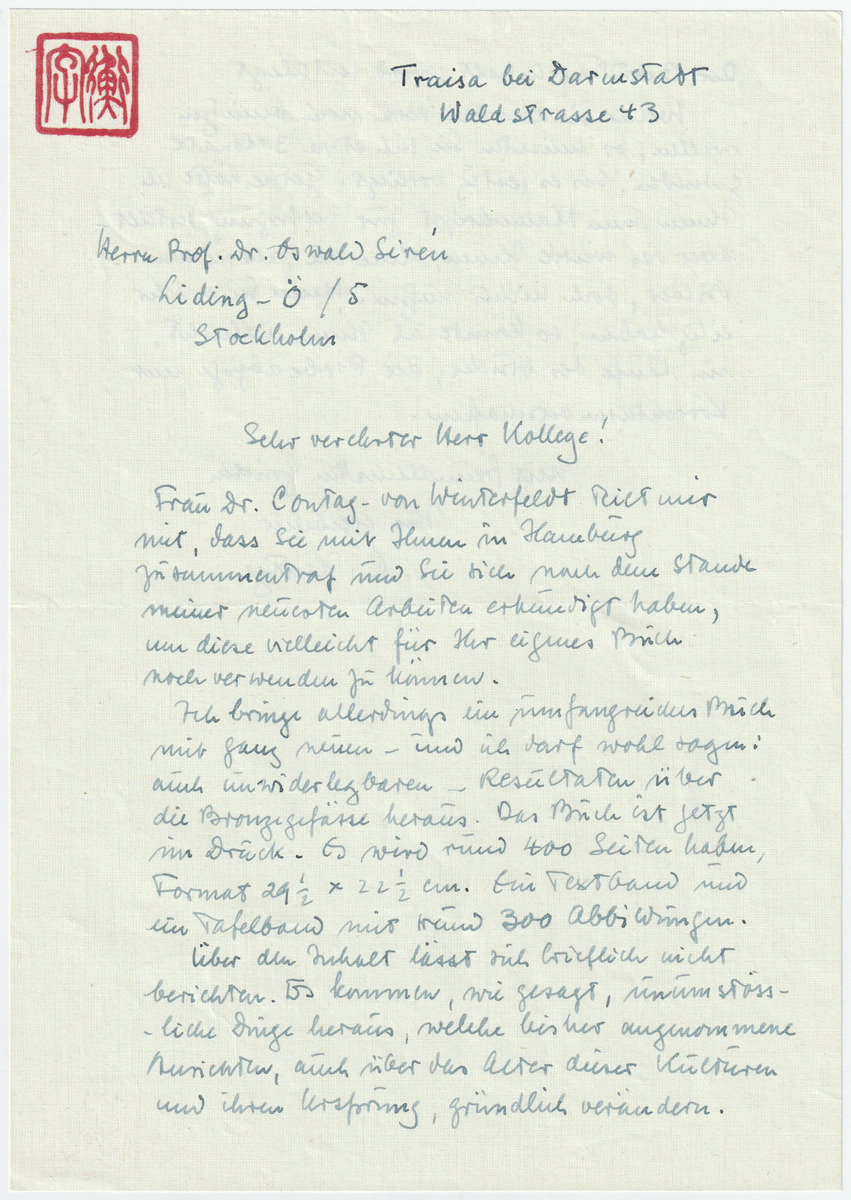 Traisa bei Darmstadt
Waldstrasse 43
Herrn Prof. Dr. Oswald Sirén
Liding-Ö /5
Stockholm
Sehr verehrter Herr Kollege!
Frau Dr. Contag-von Winterfeldt teilt mir
mit, dass Sie mit Ihnen in Hamburg
zusammentraf und Sie sich nach dem Stande
meiner neuesten Arbeiten erkundigt haben,
um diese vielleicht für Ihr eigenes Buch
noch verwenden zu können.
Ich bringe allerdings ein umfangreiches Buch
mit ganz neuen - und ich darf wohl sagen:
auch unwiderlegbaren - Resultaten über
die Bronzegefässe heraus. Das Buch ist jetzt
im Druck. Es wird rund 400 Seiten haben,
Format 29½ x 22½ cm. Ein Textband und
ein Tafelband mit rund 300 Abbildungen.
Über den Inhalt lässt sich brieflich nicht
berichten. Es kommen, wie gesagt, unumstöss-
-liche Dinge heraus, welche bisher angenommene
Ansichten, auch über das Alter dieser Kulturen
und ihren Ursprung, gründlich verändern.